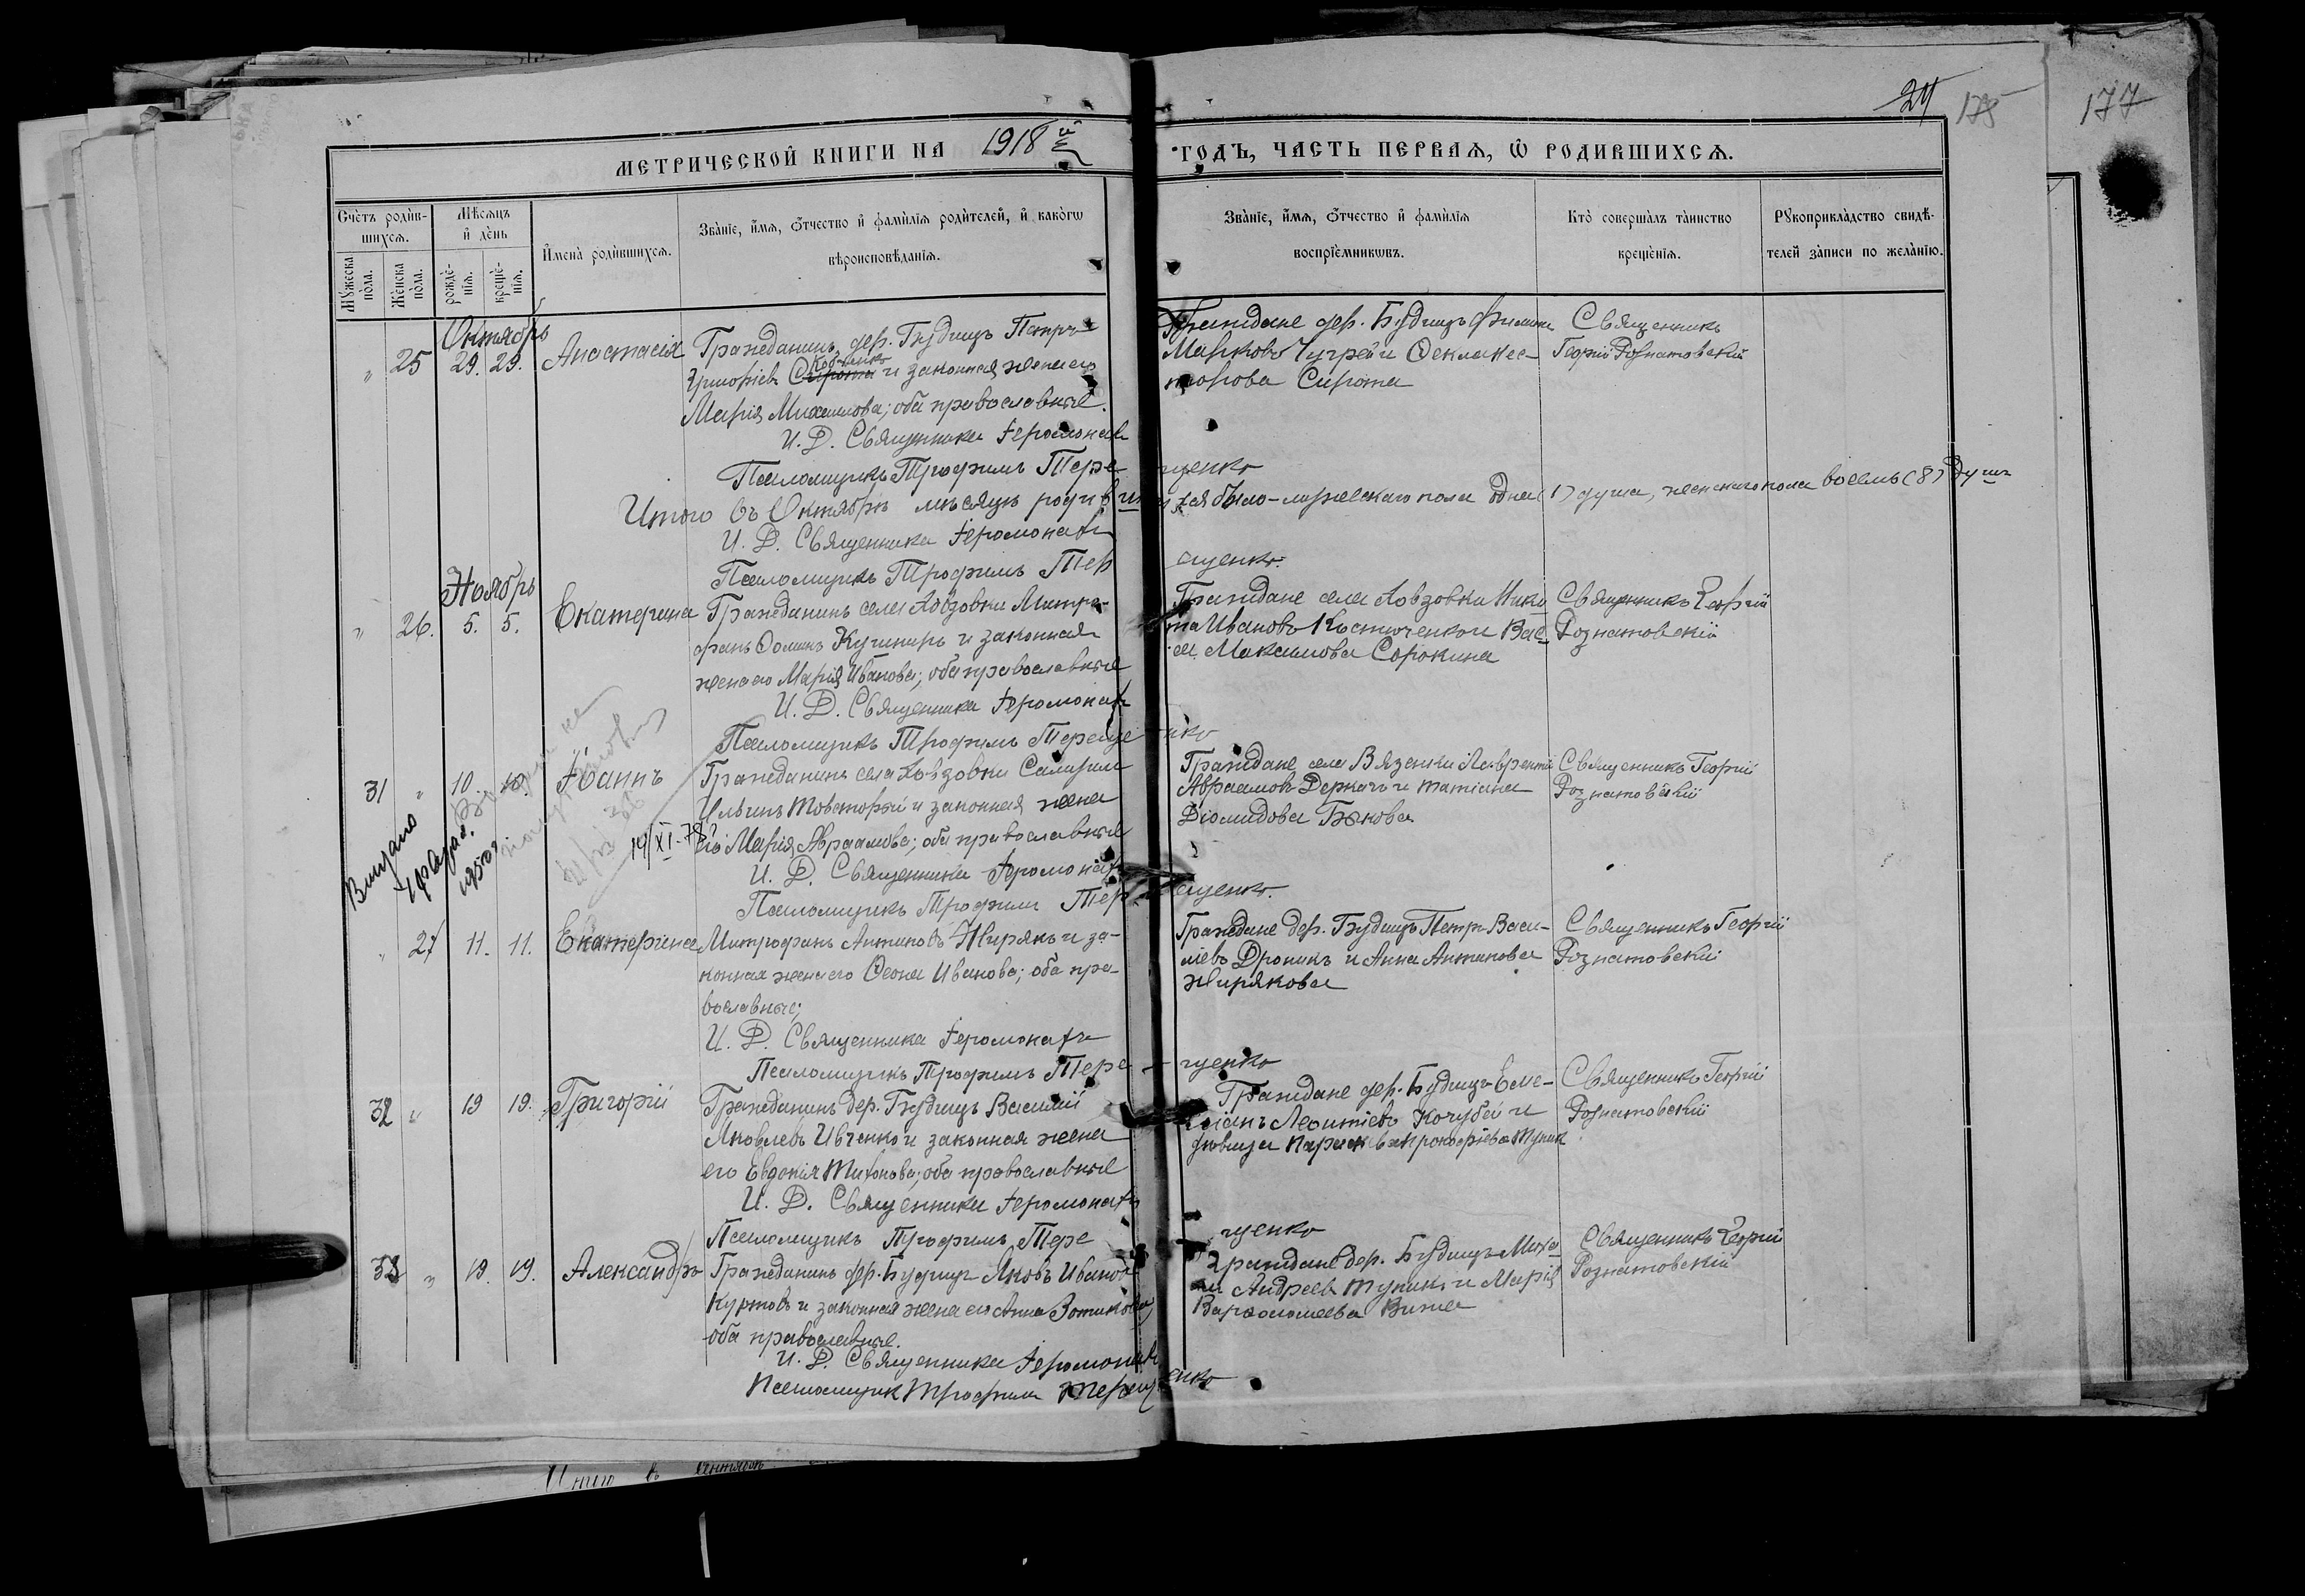 24 175 177
МЕТРИЧЕСКОЙ КНИГИ НА 1918й ГОДЪ, ЧАСТЬ ПЕРВАЯ, Ѡ РОДИВШИХСЯ.
Счѐтъ роди́в-
шихся.
Мꙋжеска
по́ла.
Же́нска
по́ла.
Мѣ́сяцъ
и҆ де́нь
рожде́-
нїя.
креще́-
нїя.
И҆мена̀ роди́вшихся.
Зва́нїе, и҆́мя, ѻ҆́тчество и҆ фами́лїя роди́телей, и҆ како́гѡ
вѣроисповѣ́данїя.
Зва́нїе, и҆́мя, ѻ҆́тчество и҆ фами́лїя
воспрїе́мникѡвъ.
Кто̀ соверша́лъ та́инство
креще́нїя.
Рꙋкоприкла́дство свидѣ́-
телей за́писи по жела́нїю.
Октябрь
" 25 29. 29. Анастасія
Гражданинъ дер. Будищъ Петръ
Сирота и законная жена его
Марія Михаилова; оба православные.
И. Д. Священника Іеромонахъ
Псаломщикъ Трофимъ Терещенко
Граждане дер. Будищъ Филиппъ
Марковъ Чугрей и Фекла Нес-
торова Сирота
Священникъ
Георгій Рознатовскій
Итого въ Октябрѣ мѣсяцѣ родившихся было - мужескаго пола одна (1) душа, женскаго пола восемь (8) душъ
И. Д. Священника Іеромонахъ
Псаломщикъ Трофимъ Терещенко.
Ноябрь
" 26. 5. 5. Екатерина
Гражданинъ села Ловзовки Митро-
фанъ Фоминъ Кушниръ и законная
жена его Марія Иванова; оба православные
И. Д. Священника Іеромонахъ
Псаломщикъ Трофимъ Терещенко
Граждане села Ловзовки Ники
та Ивановъ Костюченко и Вас
са Максимова Сорокина
Священникъ Георгій
Рознатовскій
31 " 10. 10. Іоаннъ
Гражданинъ села Ловзовки
Ильинъ Товсторый и законная жена
его Марія Авраамова; оба православные
И. Д. Священника Іеромонахъ
Псаломщикъ Трофимъ Терещенко.
Граждане села Вязенки Лаврентій
Авраамовъ Деркачъ и Татіана
Діомидова Быкова
Священникъ Георгій
Рознатовскій
Выдано
4 февраля
1950 г.
19/XI-78?
" 27 11. 11. Екатерина
Митрофанъ Антиповъ Жирякъ и за-
конная жена его Феона Иванова; оба пра-
вославные;
И. Д. Священника Іеромонахъ
Псаломщикъ Трофимъ Терещенко
Граждане дер. Будищъ Петръ Васи-
ліевъ Дроникъ и Анна Антипова
Жирякова
Священникъ Георгій
Рознатовскій
32 " 19 19. Григорій
Гражданинъ дер. Будищъ Василій
Яковлевъ Ивченко и законная жена
его Евдокія Тихонова; оба православные
И. Д. Священника Іеромонахъ
Псаломщикъ Трофимъ Терещенко
Граждане дер. Будищъ Еме-
ліанъ Леонтіевъ Кочубей и
девица Параскева Прокофіева Тупик
Священникъ Георгій
Рознатовскій
33 " 19. 19. Александръ
Гражданинъ дер. Будищъ Яковъ Ивановъ
Куртовъ и законная жена его Анна Зотикова;
оба православные.
И. Д. Священника Іеромонахъ
Псаломщик Трофимъ Терещенко
Граждане дер. Будищъ Миха
илъ Андреевъ Тупикъ и Марія
Варфоломеева
Священникъ Георгій
Рознатовскій
Итого въ Сентябрѣ